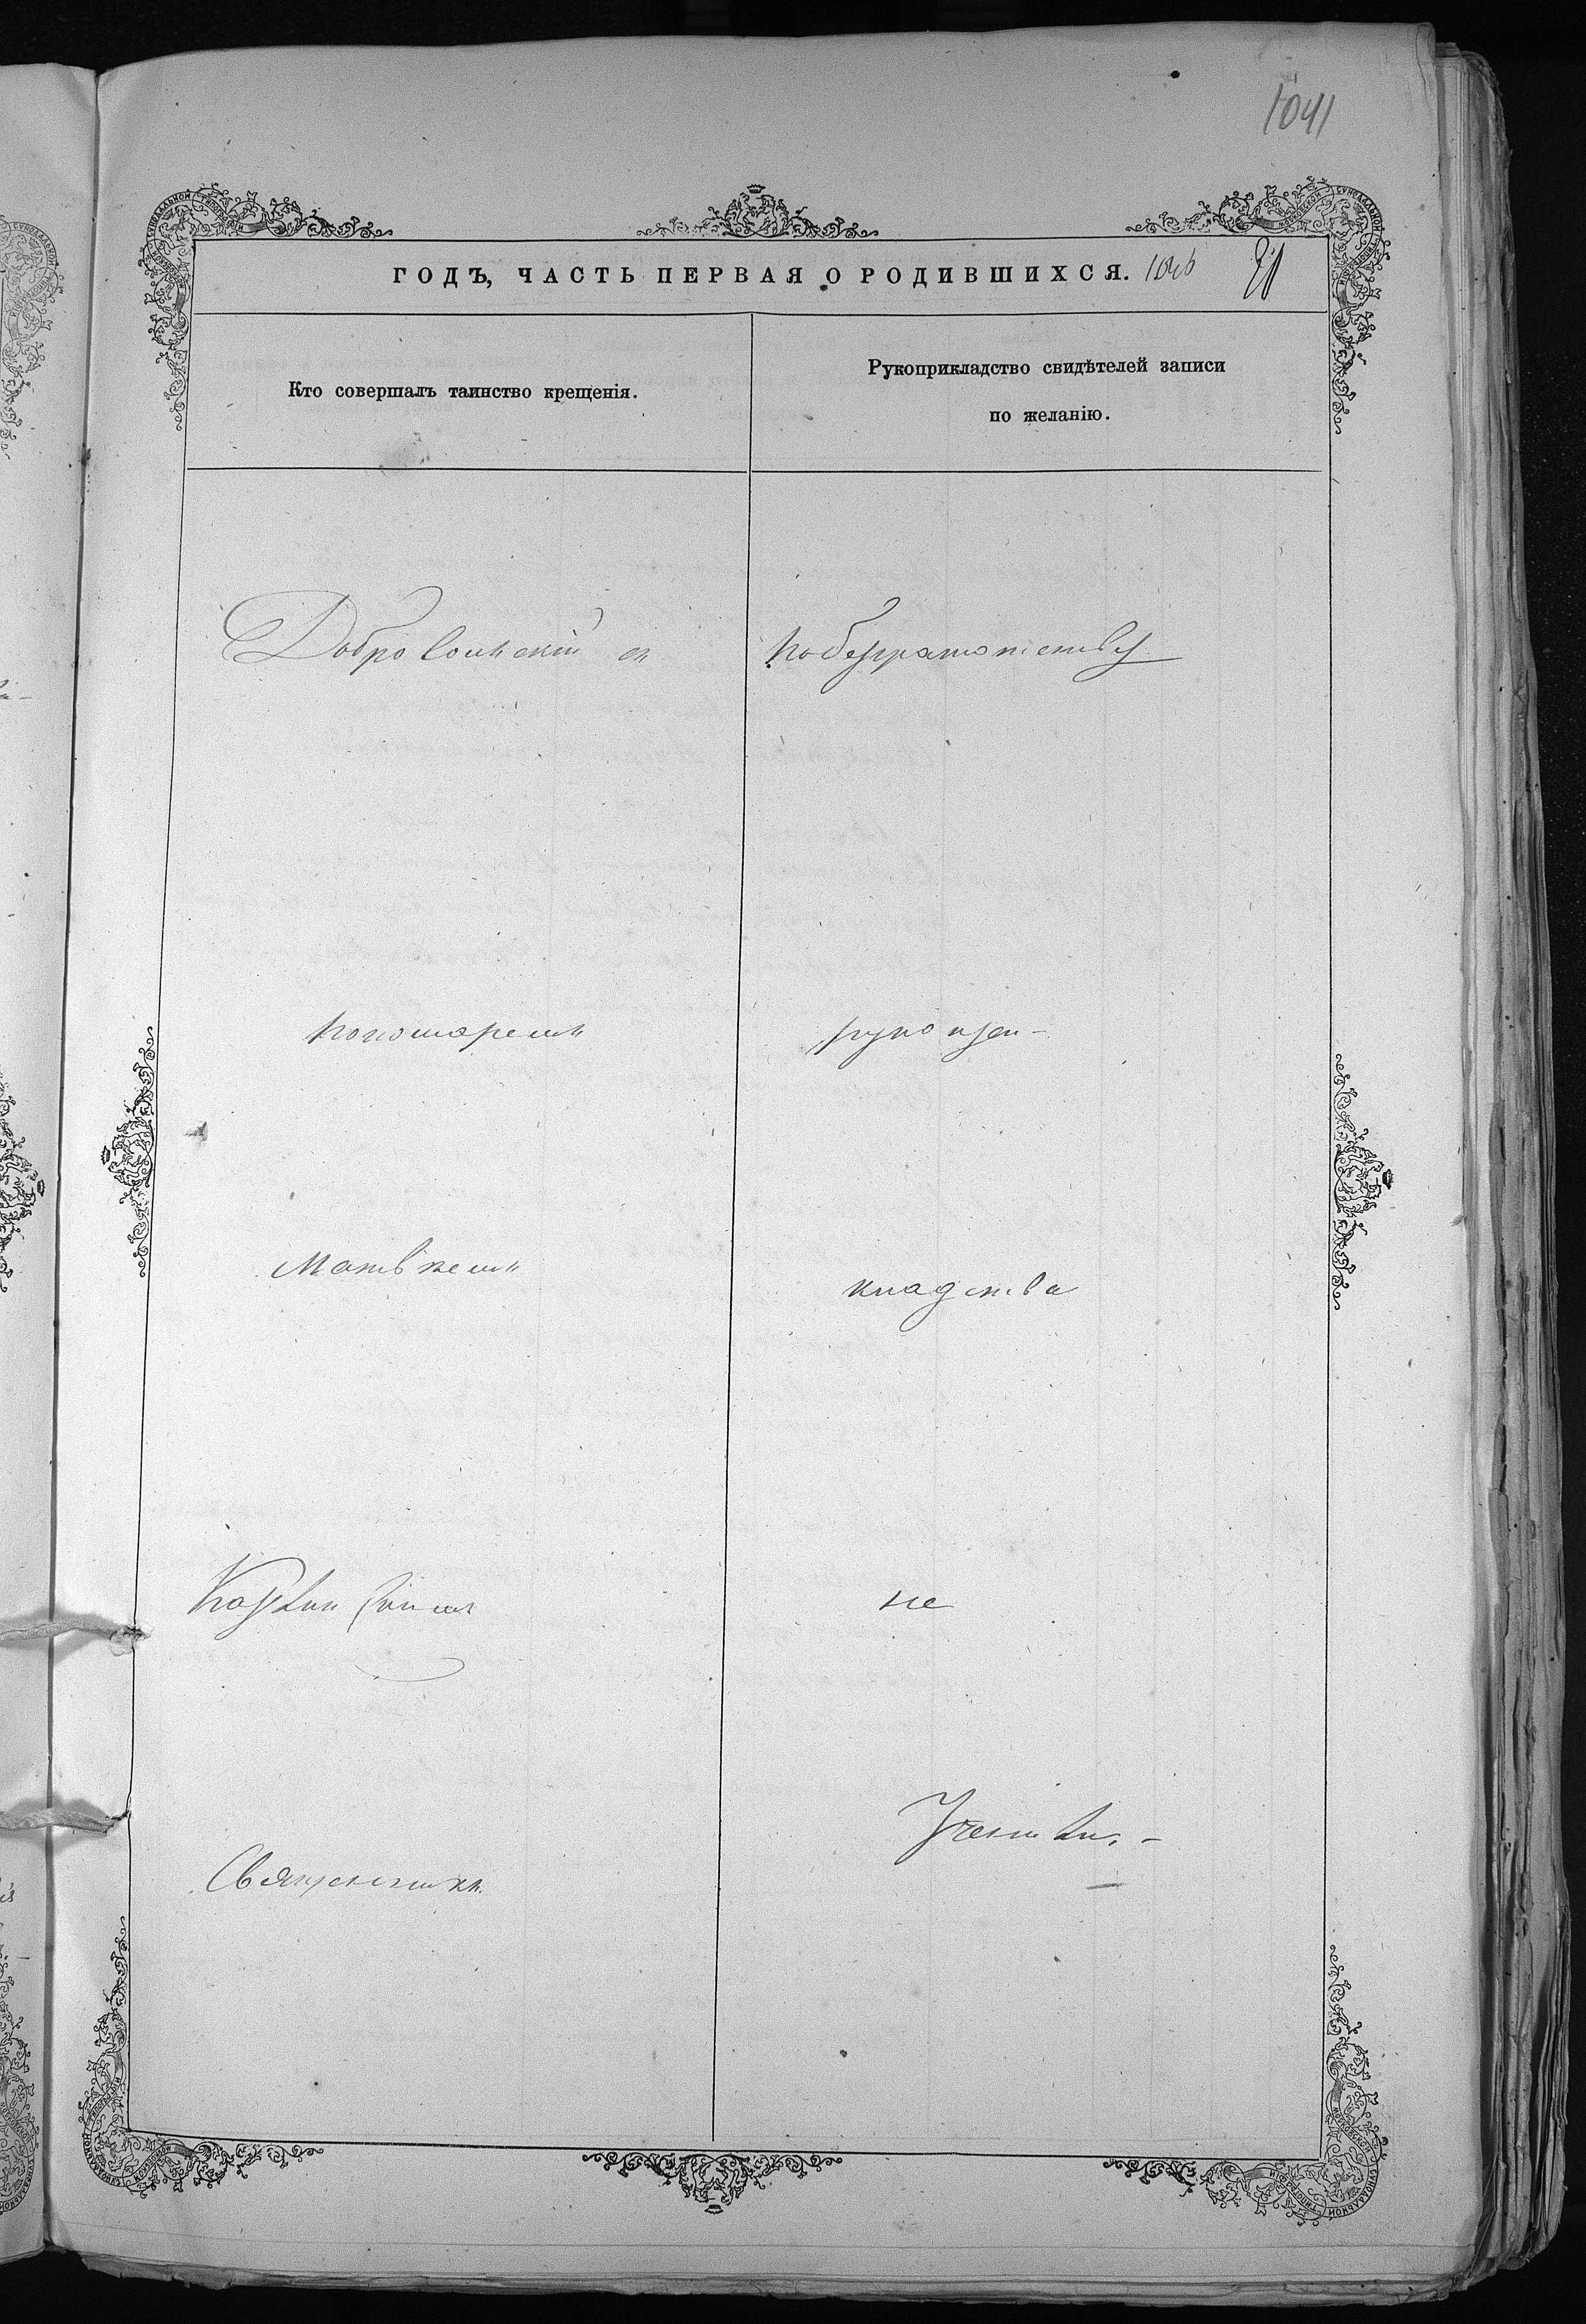 1041
ГОДЪ, ЧАСТЬ ПЕРВАЯ О РОДИВШИХСЯ.
Кто совершалъ таинство крещенія.
Рукоприкладство свидѣтелей записи
по желанію.
Добровольскій съ
по безграмотству
пономаремъ
Матвѣемъ
кладства
не
Священникъ